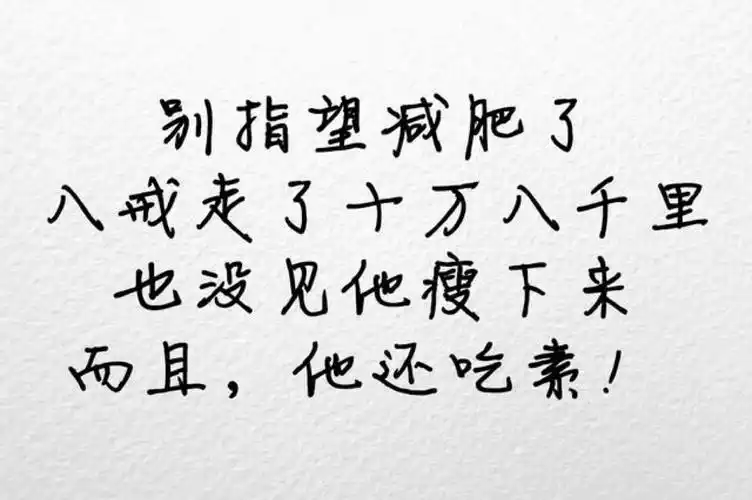 别指望减肥了
八戒走了十万八千里
也没见他瘦下来
而且，他还吃素！